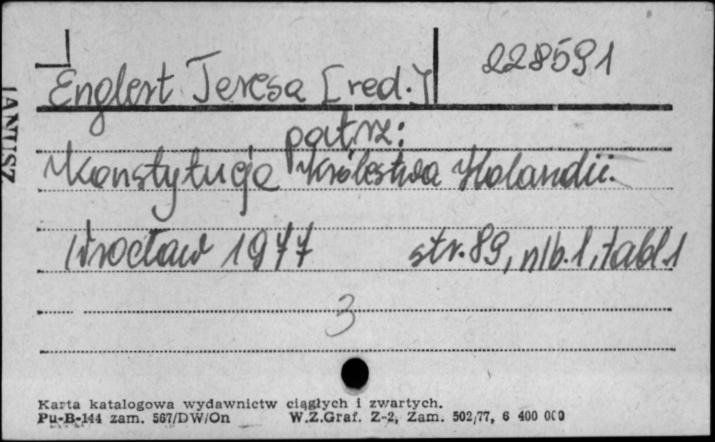 228591
Englert Teresa [red.]
patrz:
Konstytucja Królestwa Holandii.
Wrocław 1977 str. 89, nlb. 1, tabl. 1
3
JANUSZ
Karta katalogowa wydawnictw ciągłych i zwartych.
Pu-B-144 zam. 567/DW/On W.Z.Graf. Z-2, Zam. 502/77, 6 400 000